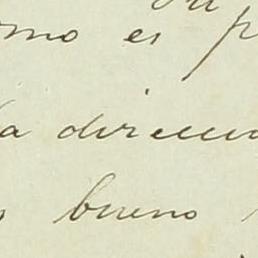 mo es p
a direcci
bueno